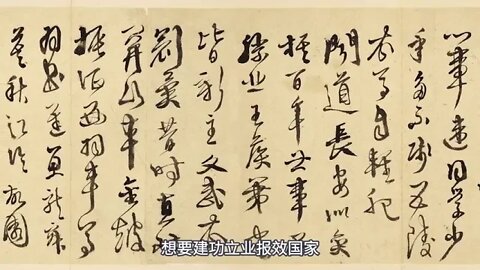 心事違同學少
年多不賤五陵
衣馬自輕肥
聞道長安似奕
棋百年世事不
勝悲王侯第宅
皆新主文武衣
冠異昔時直北
關山金鼓
振征西車馬
羽書遲魚龍寂
寞秋江冷故國
想要建功立业报效国家